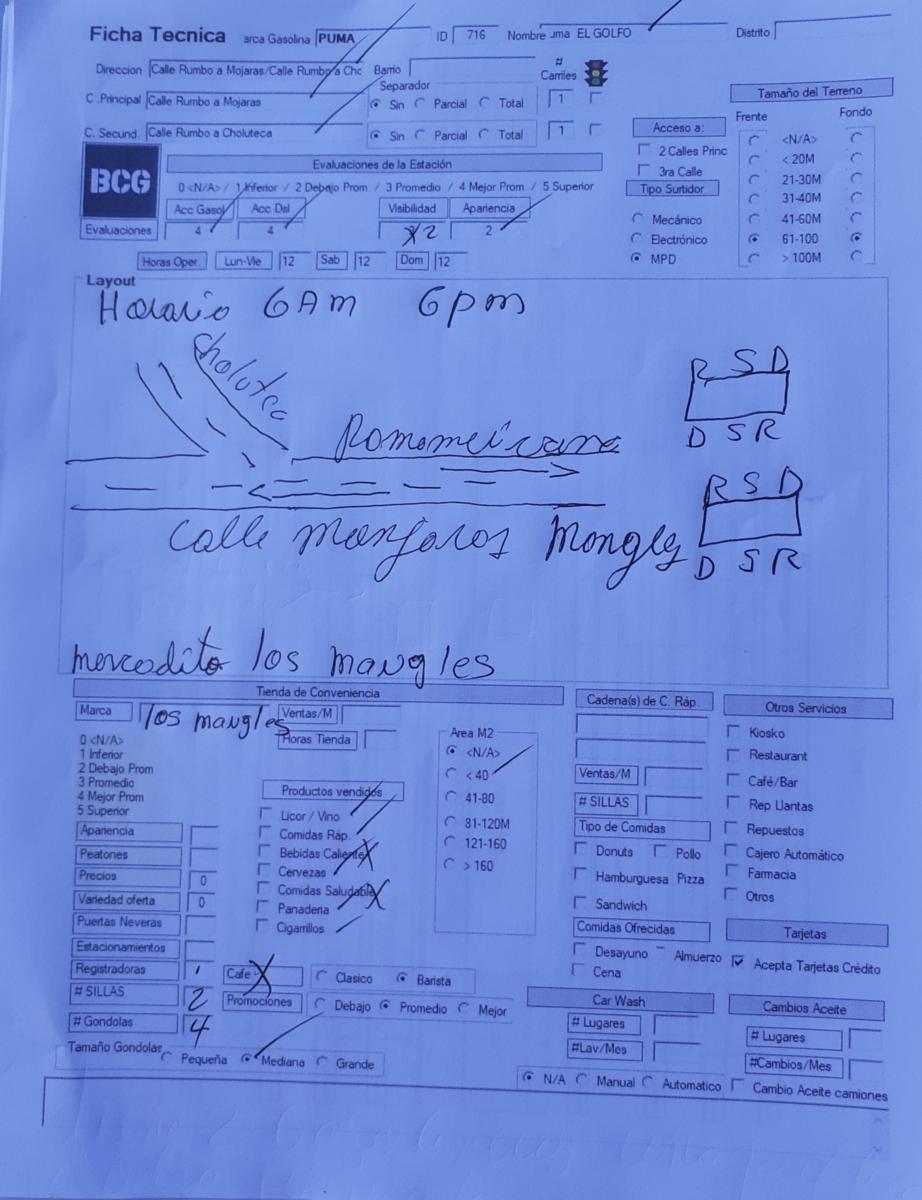 Ficha Tecnica arca Gasolina PUMA ID 716 Nombre ıma EL GOLFO Distrito
Direccion Calle Rumbo a Mojaras/Calle Rumbo a Chc Barrio
Separador # Carriles
C .Principal Calle Rumbo a Mojaras Sin Parcial Total 1
C. Secund. Calle Rumbo a Choluteca Sin Parcial Total 1
Acceso a:
2 Calles Princ
3ra Calle
Tipo Surtidor
Mecánico
Electrónico
MPD
Tamaño del Terreno
Frente Fondo
<N/A>
< 20M
21-30M
31-40M
41-60M
61-100
> 100M
BCG
Evaluaciones de la Estación
0 <N/A> / 1 Inferior / 2 Debajo Prom / 3 Promedio / 4 Mejor Prom / 5 Superior
Acc Gasol Acc Dsl Visibilidad Apariencia
Evaluaciones 4 4 2 2
Horas Oper. Lun-Vie 12 Sab 12 Dom 12
Layout
Horario 6Am 6pm
Choluteca
R S D
D S R
R S D
D S R
Calle
mercedito los mangles
Tienda de Conveniencia
Marca los mangles Ventas/M
Horas Tienda
0 <N/A>
1 Inferior
2 Debajo Prom
3 Promedio
4 Mejor Prom
5 Superior
Apariencia
Peatones
Precios 0
Variedad oferta 0
Puertas Neveras
Estacionamientos
Registradoras 1
# SILLAS 2
# Gondolas 4
Tamaño Gondolas Pequeña Mediana Grande
Productos vendidos
Licor / Vino
Comidas Ráp.
Bebidas Caliente
Cervezas
Comidas Saludable
Panaderia
Cigarrillos
Cafe Clasico Barista
Promociones Debajo Promedio Mejor
Area M2
<N/A>
< 40
41-80
81-120M
121-160
> 160
Cadena(s) de C. Ráp.
Ventas/M
# SILLAS
Tipo de Comidas
Donuts Pollo
Hamburguesa Pizza
Sandwich
Comidas Ofrecidas
Desayuno Almuerzo
Cena
Otros Servicios
Kiosko
Restaurant
Café/Bar
Rep Llantas
Repuestos
Cajero Automático
Farmacia
Otros
Tarjetas
Acepta Tarjetas Crédito
Car Wash
# Lugares
#Lav/Mes
N/A Manual Automatico
Cambios Aceite
# Lugares
#Cambios/Mes
Cambio Aceite camiones